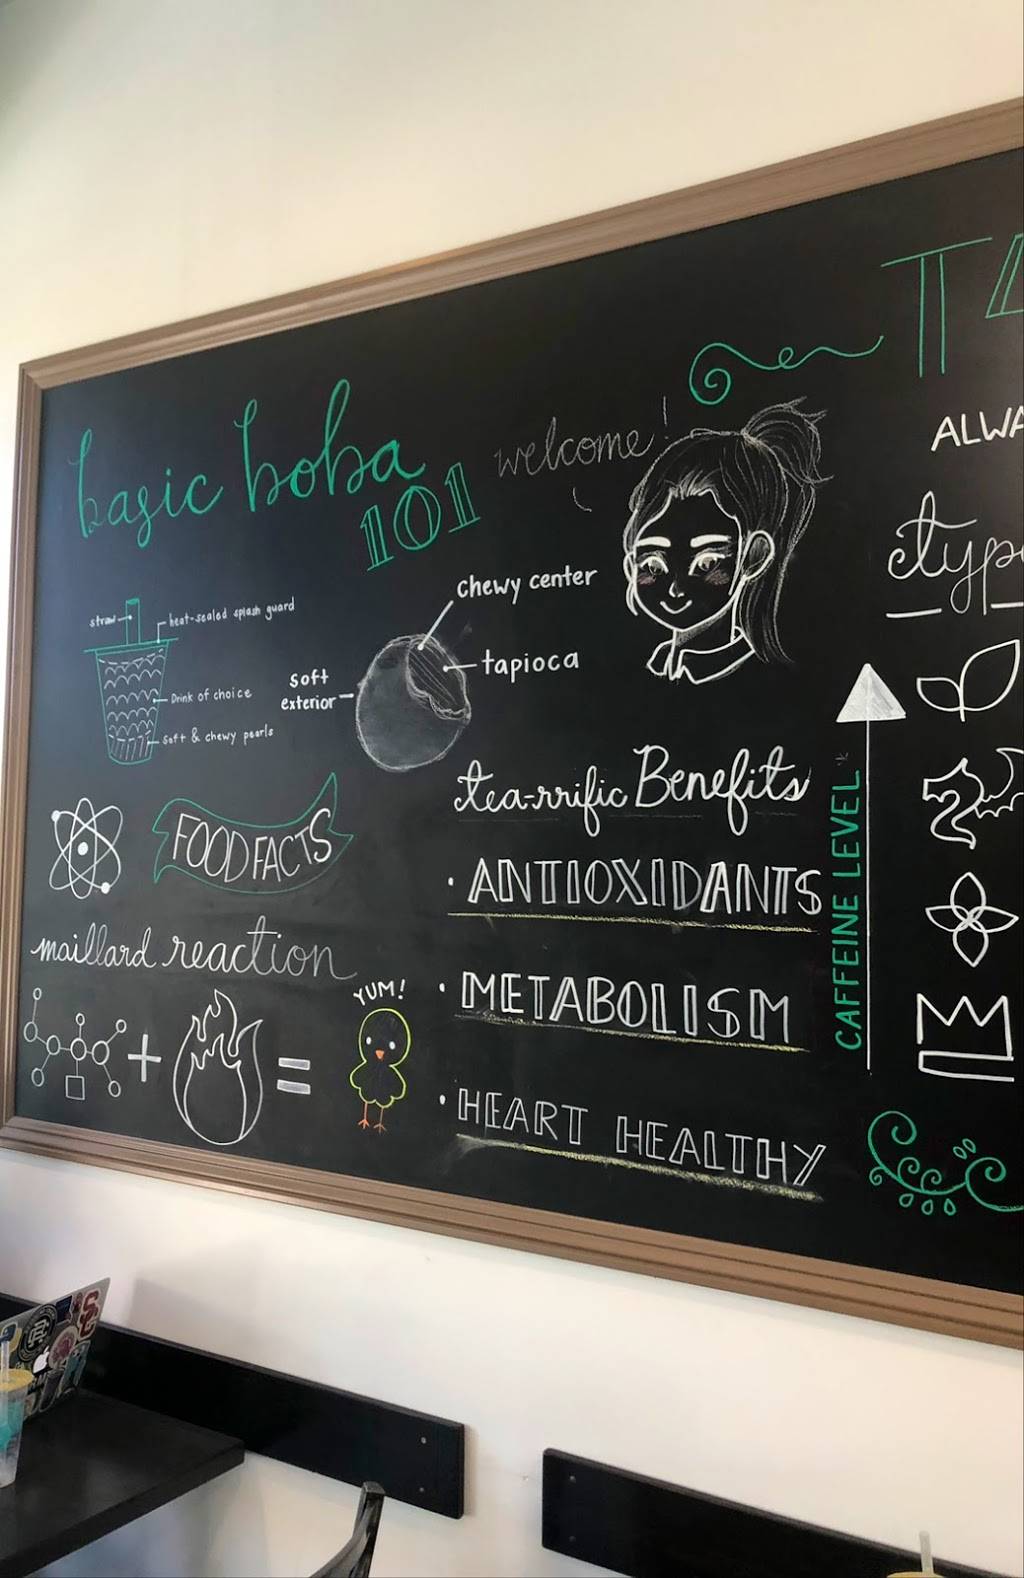 basic boba
101
welcome!
straw
heat-sealed splash guard
Drink of choice
soft & chewy pearls
chewy center
tapioca
soft
exterior
FOOD FACTS
maillard reaction
+
=
YUM!
tea-rrific Benefits
· ANTIOXIDANTS
· METABOLISM
· HEART HEALTHY
CAFFEINE LEVEL *
T
ALWA
typ
SC